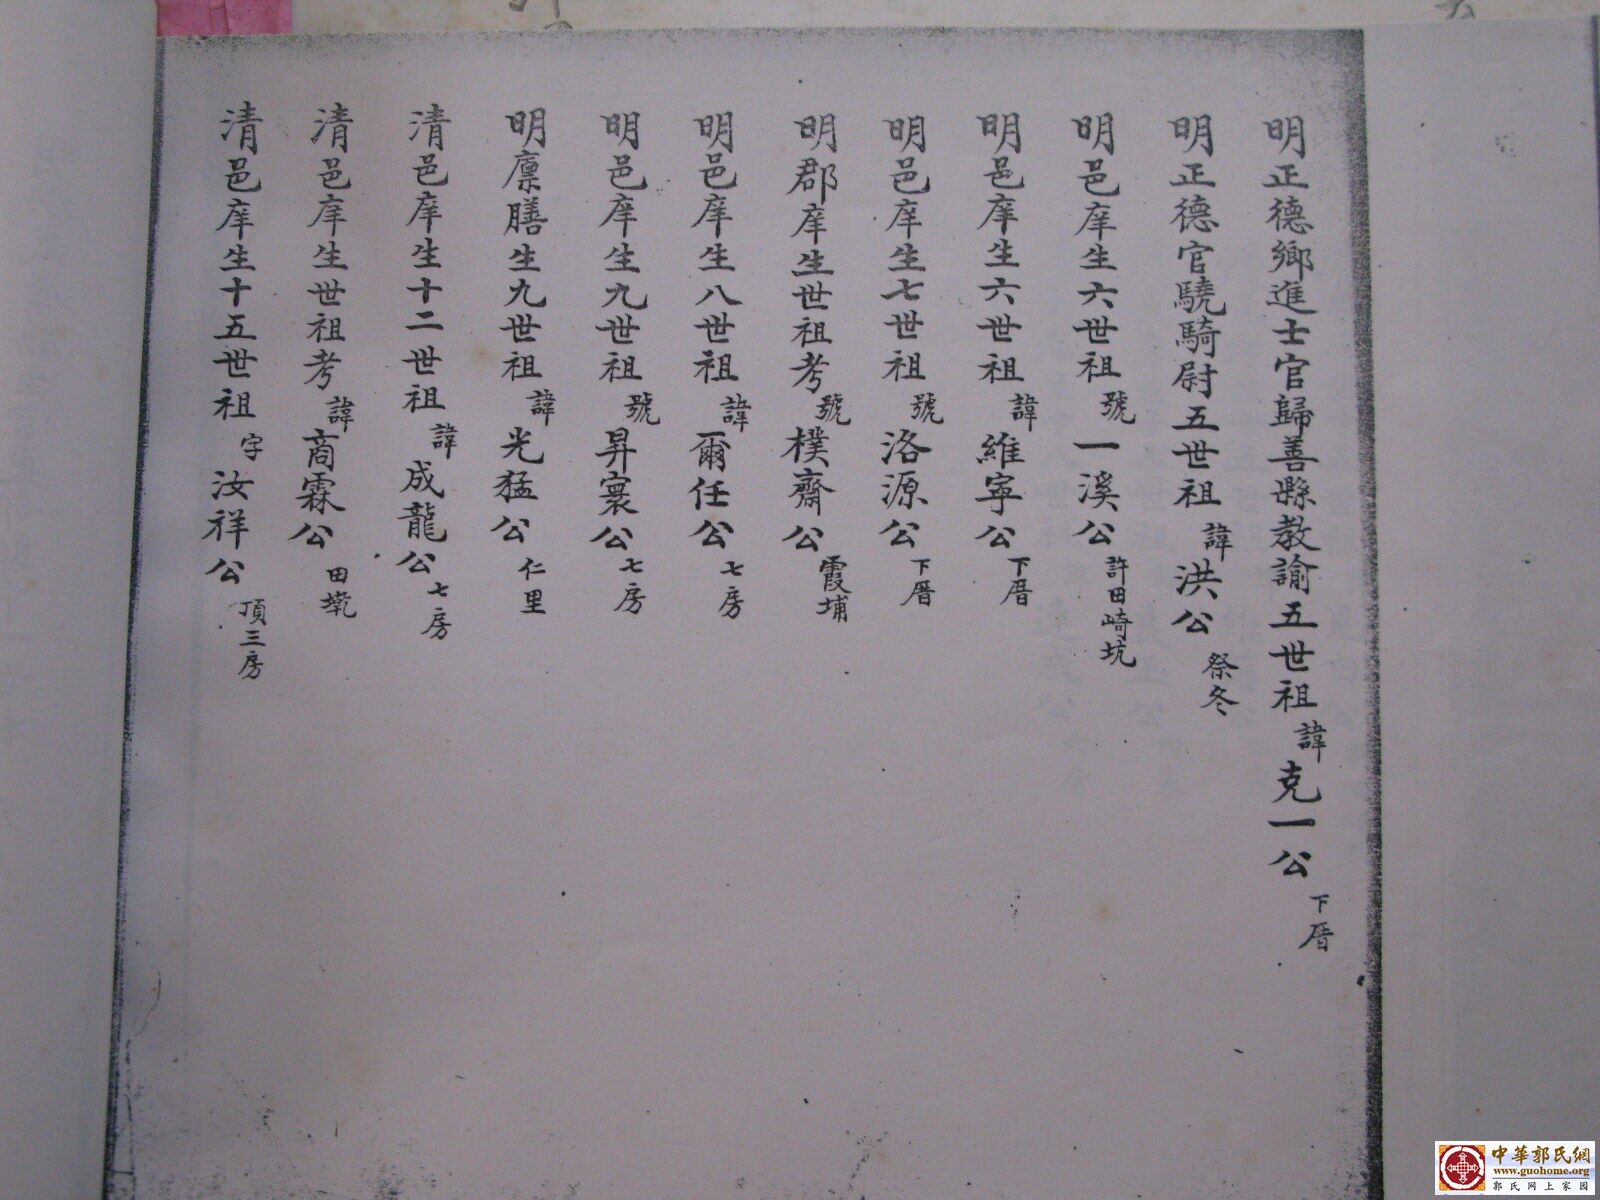 明正德鄉進士官歸善縣教諭五世祖諱克一公下厝
明正德官驍騎尉五世祖諱洪公祭冬
明邑庠生六世祖號一溪公許田崎坑
明邑庠生六世祖諱維寧公下厝
明邑庠生七世祖號洛源公下厝
明郡庠生世祖考號樸齋公霞埔
明邑庠生八世祖諱爾任公七房
明邑庠生九世祖號昇寰公七房
明廩膳生九世祖諱光猛公仁里
清邑庠生十二世祖諱成龍公七房
清邑庠生世祖考諱商霖公田
清邑庠生十五世祖字汝祥公頂三房
中華郭氏網
www.guohome.org
郭氏网上家园